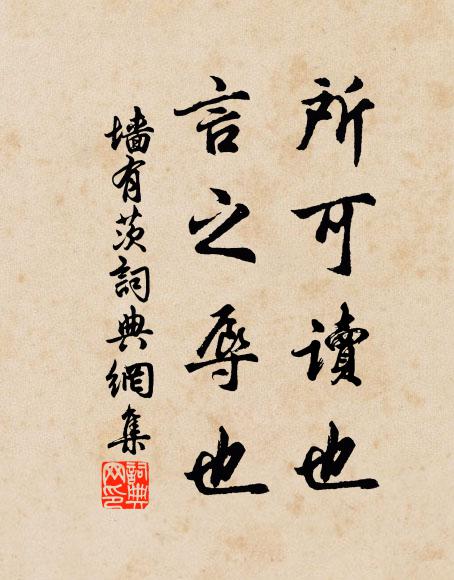 所可讀也
言之辱也
墙有茨詞典網集
詞典网印